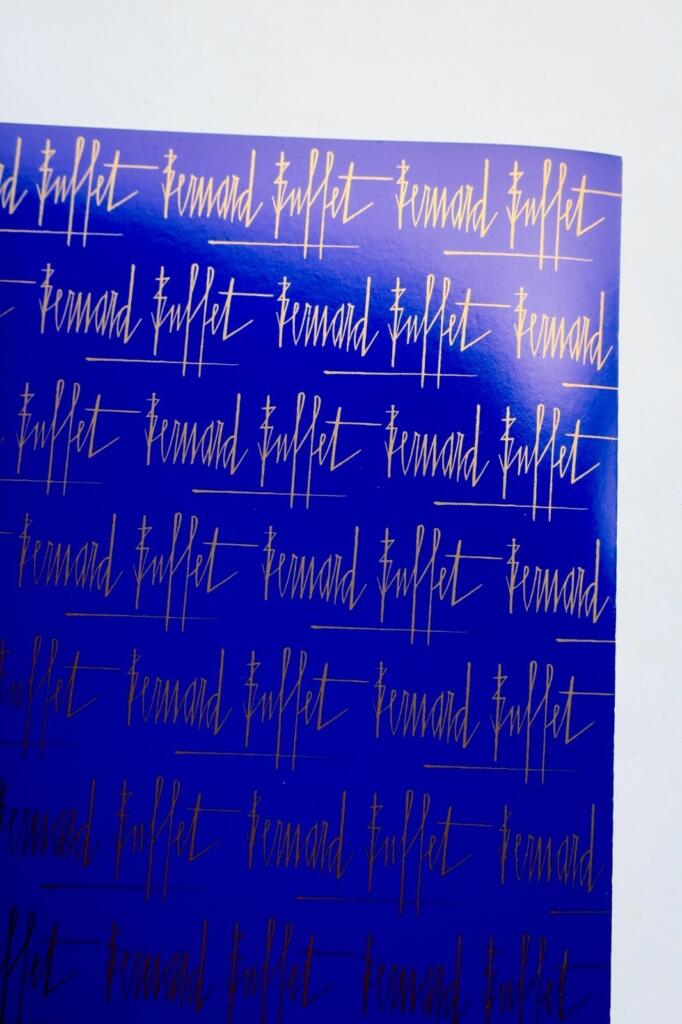 d Buffet Bernard Buffet Bernard Buffet
Bernard Buffet Bernard Buffet Bernard
Buffet Bernard Buffet Bernard Buffet
Bernard Buffet Bernard Buffet Bernard
Buffet Bernard Buffet Bernard Buffet
Bernard Buffet Bernard Buffet Bernard
ffet Bernard Buffet Bernard Buffet